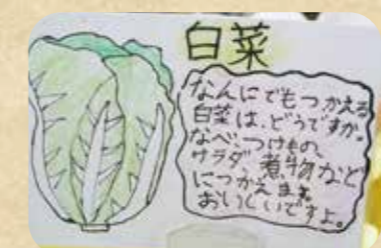 白菜
なんにでもつかえる
白菜は、どうですか。
なべ、つけもの、
サラダ、煮物など
につかえます。
おいしいですよ。